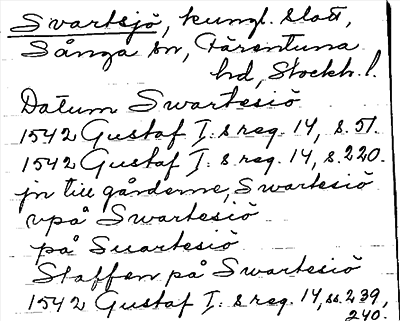 Svartsjö, kungl. slott,
Sånga sn, Färentuna
hd, Stockh. l.
Datum Swartesiö
1542 Gustaf I:s reg. 14, s. 51.
1542 Gustaf I:s reg. 14, s. 220.
jn till gårdenne, Swartesiö
vpå Swartesiö
på Suartesiö
Staffen på Swartesiö
1542 Gustaf I:s reg. 14, ss. 239,
240.